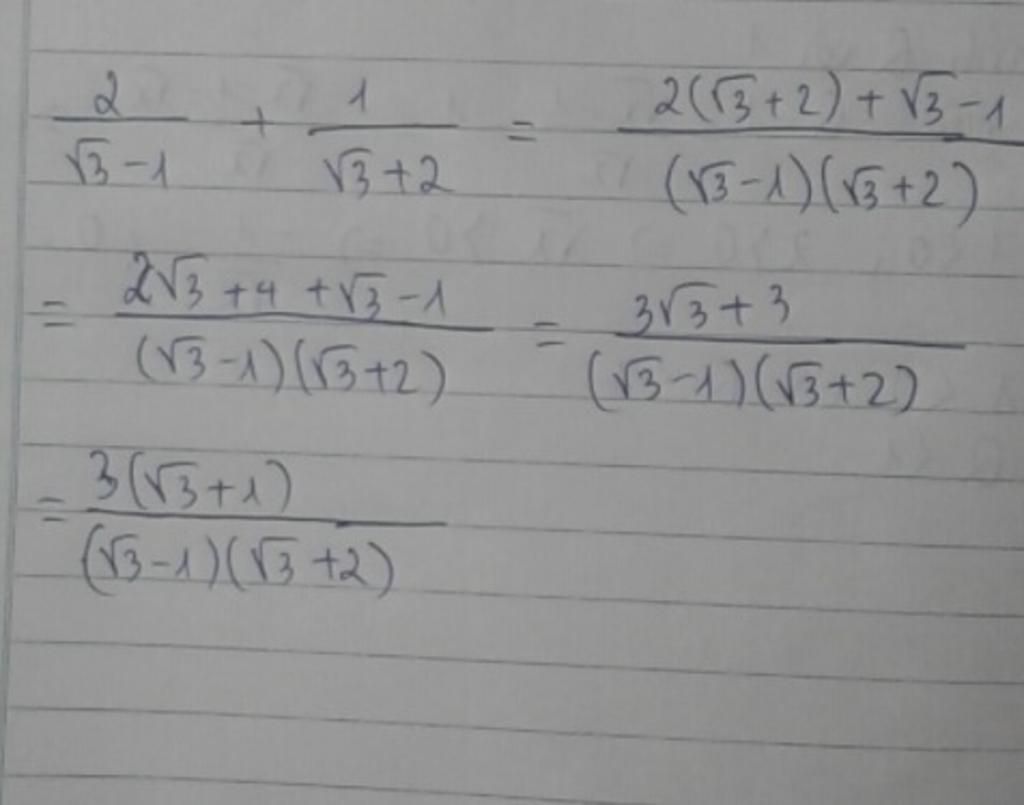 2/(√3-1) + 1/(√3+2) = (2(√3+2)+√3-1)/((√3-1)(√3+2))
= (2√3+4+√3-1)/((√3-1)(√3+2)) = (3√3+3)/((√3-1)(√3+2))
= (3(√3+1))/((√3-1)(√3+2))